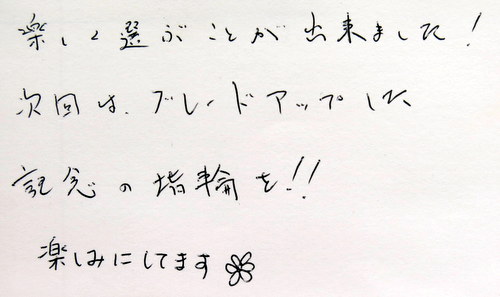 楽しく選ぶことが出来ました!
次回は、グレードアップした
記念の指輪を!!
楽しみにしてます